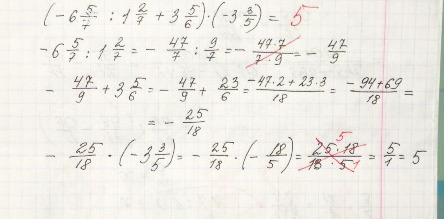 (-6 5/7 : 1 2/7 + 3 5/6) · (-3 3/5) = 5
-6 5/7 : 1 2/7 = - 47/7 : 9/7 = - 47·7/7·9 = - 47/9
- 47/9 + 3 5/6 = - 47/9 + 23/6 = -47·2+23·3/18 = -94+69/18 =
= - 25/18
- 25/18 · (-3 3/5) = - 25/18 · (- 18/5) = 25·18/18·5 = 5/1 = 5